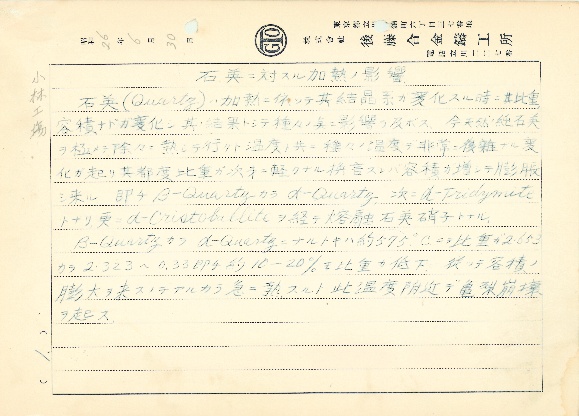 昭和26年6月30日
株式会社 後藤合金鑄工所
小林工場
石英ニ対スル加熱ノ影響
石英(Quartz)ハ加熱ニ依ッテ其結晶系ガ変化スル時ニ其比重
容積ナドガ変化シ其結果トシテ種々影響ヲ及ボス 今天然純石英
ヲ極メテ除々ニ熱シテ行クト温度ト共ニ種々ノ温度デ非常ニ複雑ナル変
化ガ起リ其都度比重ガ次第ニ軽クナル 容積ヲ増シテ膨脹
ヲ来ル 即チ β-Quartzカラα-Quartz 次ニα-Tridymite
トナリ更ニα-Cristoballiteヲ経テ溶融石英硝子トナル
β-Quartzカラα-Quartzニナルトキハ約575°Cニテ比重ガ2.653
カラ2.323ヘ 0.33即チ約15-20%モ比重ガ低下 従ッテ容積ノ
膨大ヲ来スノデアルカラ急ニ熱スルト此温度附近デ亀裂崩壊
ヲ起ス